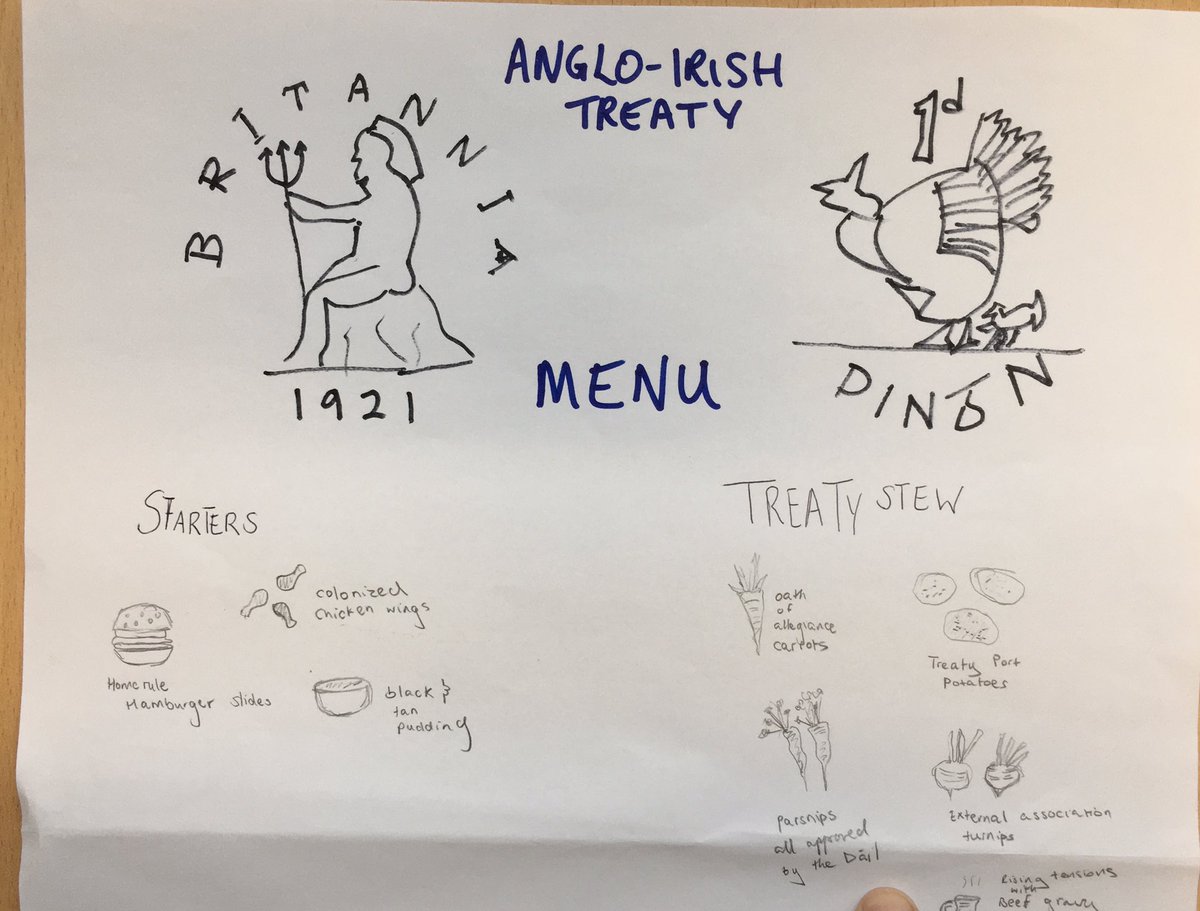 ANGLO-IRISH
TREATY
BRITANNIA
1921
1d
DINÓN
MENU
STARTERS
colonized
chicken wings
Home rule
Hamburger slides
black &
tan
pudding
TREATY STEW
oath
of
allegiance
carrots
Treaty Port
Potatoes
Parsnips
all approved
by the Dáil
External association
turnips
Rising tensions
with
Beef gravy